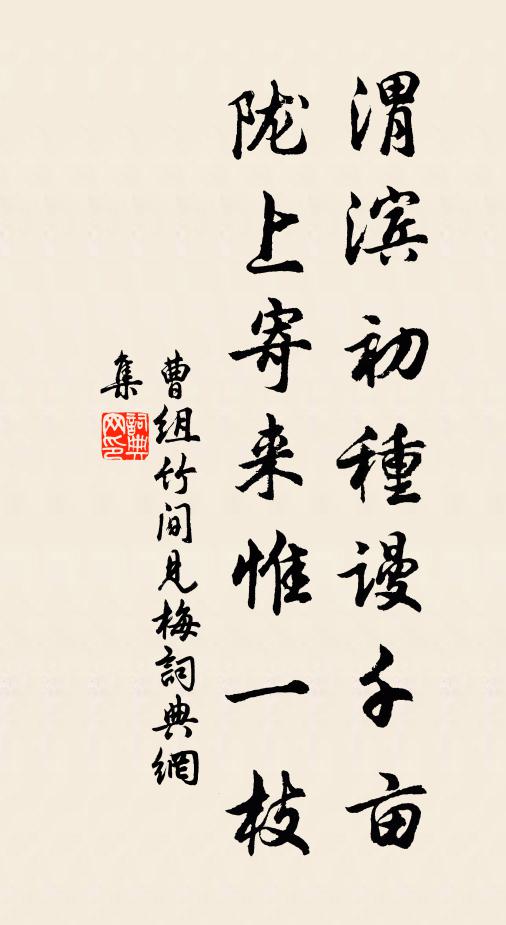 渭滨初種谩千亩
陇上寄来惟一枝
曹组竹间见梅詞典網
集
詞典网印